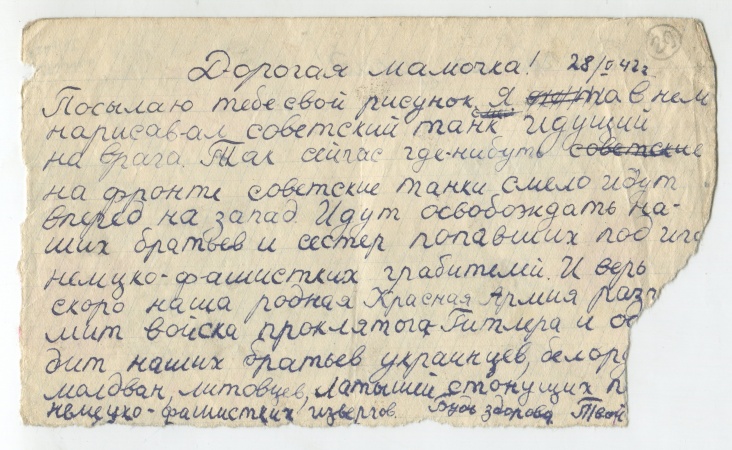 Дорогая мамочка! 28/I 42 г.
22
Посылаю тебе свой рисунок. Я на в нем
нарисавал советский танк идущий
на врага. Так сейчас где-нибуть советские
на фронте советские танки смело идут
вперед на запад. Идут освобождать на-
ших братьев и сестер попавших под иго
немецко-фашистких грабителей. И верь
скоро наша родная Красная Армия разг
мит войска проклятога Гитлера и
дит наших братьев украинцев, белору
малдван, литовцев, латышей, стонущих п
немецко-фашистких извергов. Будь здорова Твой